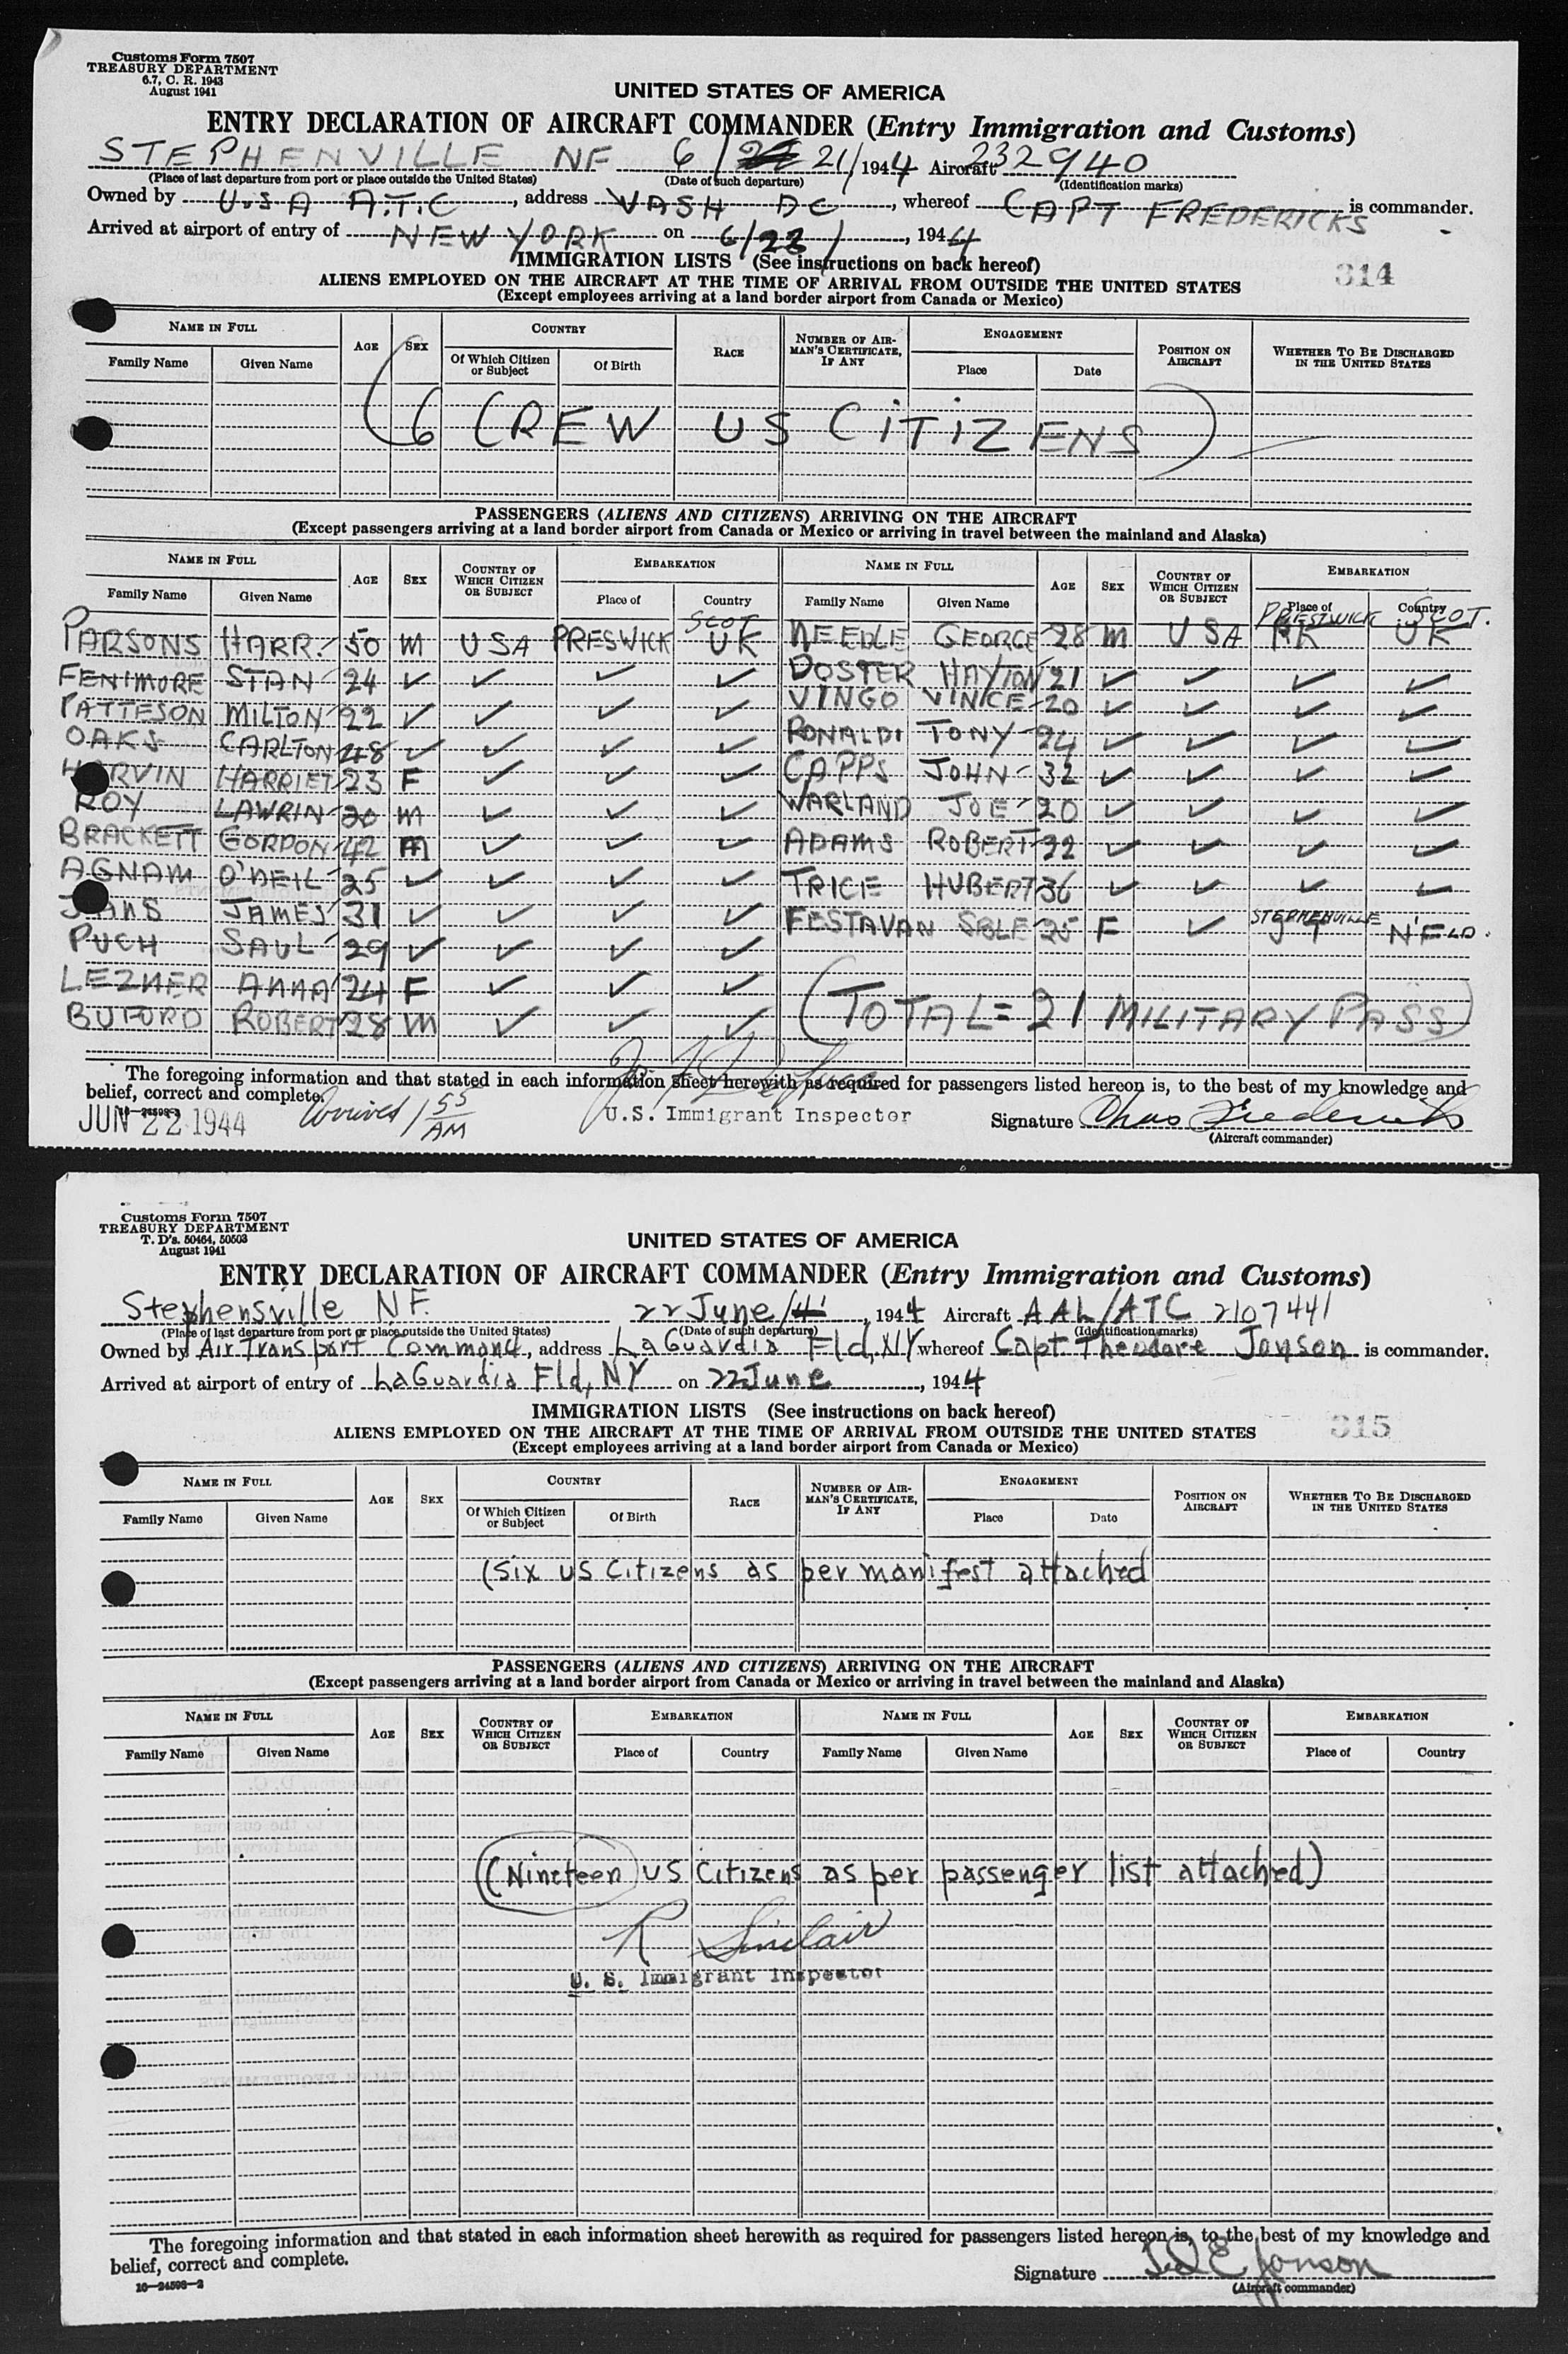 Customs Form 7507
TREASURY DEPARTMENT
6.7, C. R. 1943
August 1941
UNITED STATES OF AMERICA
ENTRY DECLARATION OF AIRCRAFT COMMANDER (Entry Immigration and Customs)
STEPHENVILLE NF 6/21/1944 Aircraft 232940
(Place of last departure from port or place outside the United States) (Date of such departure) (Identification marks)
Owned by U.S A A.T.C, address WASH DC, whereof CAPT FREDERICKS is commander.
Arrived at airport of entry of NEW YORK on 6/22/, 1944
IMMIGRATION LISTS (See instructions on back hereof)
314
ALIENS EMPLOYED ON THE AIRCRAFT AT THE TIME OF ARRIVAL FROM OUTSIDE THE UNITED STATES
(Except employees arriving at a land border airport from Canada or Mexico)
NAME IN FULL AGE SEX COUNTRY RACE NUMBER OF AIRMAN'S CERTIFICATE, IF ANY ENGAGEMENT POSITION ON AIRCRAFT WHETHER TO BE DISCHARGED IN THE UNITED STATES
Family Name Given Name Of Which Citizen or Subject Of Birth Place Date
(6 CREW US CITIZENS)
PASSENGERS (ALIENS AND CITIZENS) ARRIVING ON THE AIRCRAFT
(Except passengers arriving at a land border airport from Canada or Mexico or arriving in travel between the mainland and Alaska)
NAME IN FULL AGE SEX COUNTRY OF WHICH CITIZEN OR SUBJECT EMBARKATION NAME IN FULL AGE SEX COUNTRY OF WHICH CITIZEN OR SUBJECT EMBARKATION
Family Name Given Name Place of Country Family Name Given Name Place of Country
PARSONS HARR. 50 M USA PRESWICK SCOT UK NEEDLE GEORGE 28 M USA PRESTWICK SCOT. UK
FENIMORE STAN 24 ✓ ✓ ✓ ✓ DOSTER HAYTON 21 ✓ ✓ ✓ ✓
PATTESON MILTON 22 ✓ ✓ ✓ ✓ VINGO VINICE 20 ✓ ✓ ✓ ✓
OAKS CARLTON 48 ✓ ✓ ✓ ✓ RONALDI TONY 24 ✓ ✓ ✓ ✓
HARRIET 23 F ✓ ✓ ✓ CAPPS JOHN 32 ✓ ✓ ✓ ✓
ROY LAWRIN 20 M ✓ ✓ ✓ WARLAND JOE 20 ✓ ✓ ✓ ✓
BRACKETT GORDON 42 M ✓ ✓ ✓ ADAMS ROBERT 22 ✓ ✓ ✓ ✓
AGNAM O'NEIL 25 ✓ ✓ ✓ ✓ TRICE HUBERT 36 ✓ ✓ ✓ ✓
JAMES 31 ✓ ✓ ✓ ✓ FESTAVAN 25 F ✓ STEPHENVILLE N'FLD.
PUCH SAUL 29 ✓ ✓ ✓ ✓
LEZNER ANNA 24 F ✓ ✓ ✓
BUFORD ROBERT 28 M ✓ ✓ ✓
(TOTAL = 21 MILITARY PASS)
The foregoing information and that stated in each information sheet herewith as required for passengers listed hereon is, to the best of my knowledge and
belief, correct and complete.
16—24598-2
JUN 22 1944 Arrived 1 55 AM U.S. Immigrant Inspector Signature Chas Fredericks
(Aircraft commander)
Customs Form 7507
TREASURY DEPARTMENT
T. D's. 50464, 50503
August 1941
UNITED STATES OF AMERICA
ENTRY DECLARATION OF AIRCRAFT COMMANDER (Entry Immigration and Customs)
Stephensville NF. 22 June, 1944 Aircraft AAL/ATC 2107441
(Place of last departure from port or place outside the United States) (Date of such departure) (Identification marks)
Owned by Air Transport Command, address LaGuardia Fld, NY whereof Capt Theodore Jonson is commander.
Arrived at airport of entry of LaGuardia Fld, NY on 22 June, 1944
IMMIGRATION LISTS (See instructions on back hereof)
315
ALIENS EMPLOYED ON THE AIRCRAFT AT THE TIME OF ARRIVAL FROM OUTSIDE THE UNITED STATES
(Except employees arriving at a land border airport from Canada or Mexico)
NAME IN FULL AGE SEX COUNTRY RACE NUMBER OF AIRMAN'S CERTIFICATE, IF ANY ENGAGEMENT POSITION ON AIRCRAFT WHETHER TO BE DISCHARGED IN THE UNITED STATES
Family Name Given Name Of Which Citizen or Subject Of Birth Place Date
(Six US Citizens as per manifest attached
PASSENGERS (ALIENS AND CITIZENS) ARRIVING ON THE AIRCRAFT
(Except passengers arriving at a land border airport from Canada or Mexico or arriving in travel between the mainland and Alaska)
NAME IN FULL AGE SEX COUNTRY OF WHICH CITIZEN OR SUBJECT EMBARKATION NAME IN FULL AGE SEX COUNTRY OF WHICH CITIZEN OR SUBJECT EMBARKATION
Family Name Given Name Place of Country Family Name Given Name Place of Country
(Nineteen US Citizens as per passenger list attached)
R Sinclair
U. S. Immigrant Inspector
The foregoing information and that stated in each information sheet herewith as required for passengers listed hereon is, to the best of my knowledge and
belief, correct and complete.
16—24598-2
Signature T.D.E Jonson
(Aircraft commander)